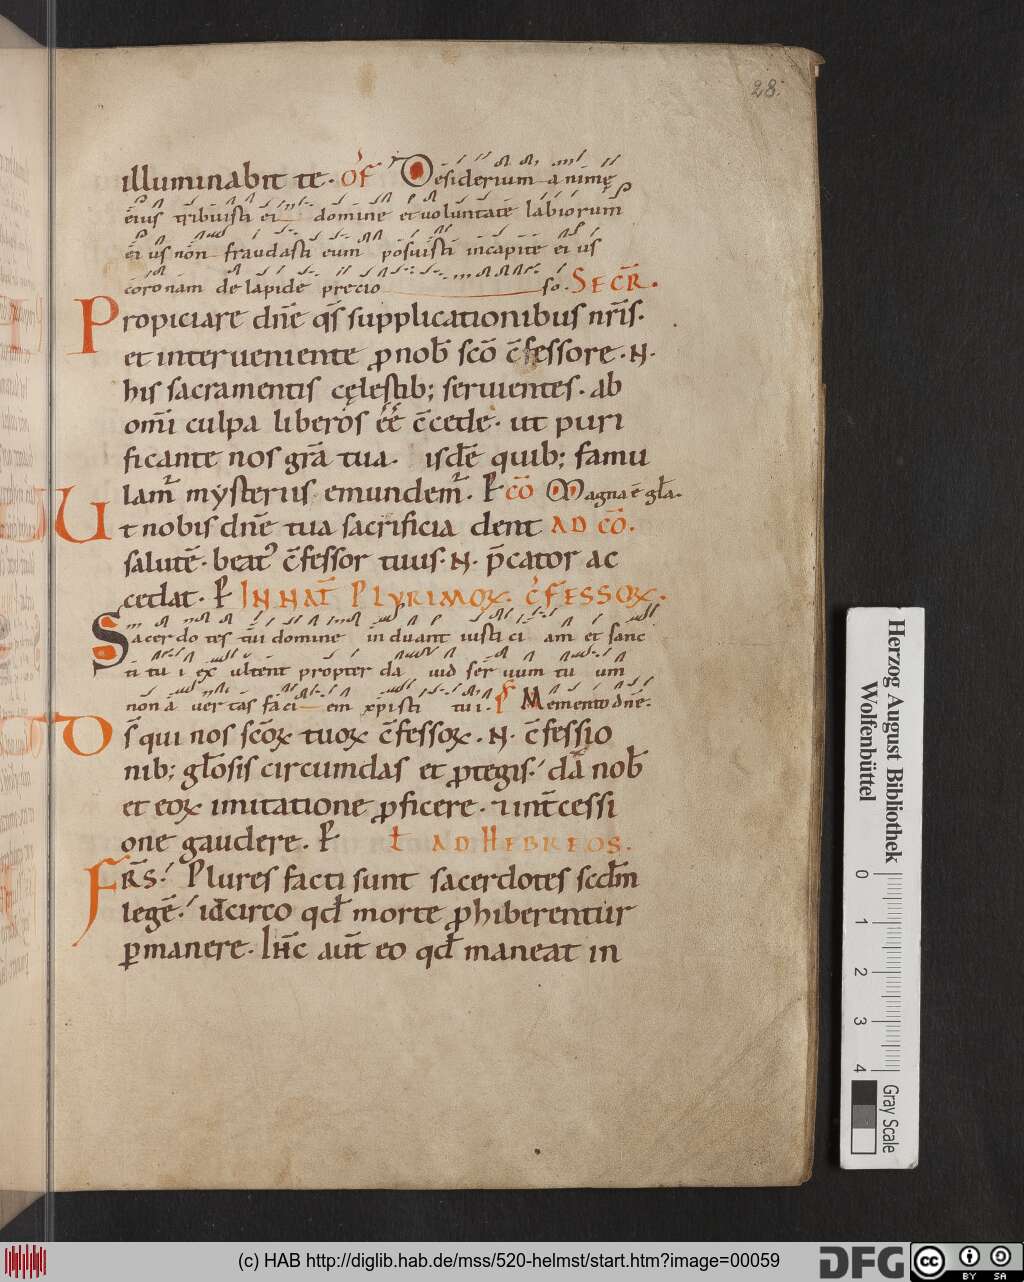 28.
illuminabit te. Of Desiderium animę
eius tribuisti ei domine et uoluntatē labiorum
ei us non fraudasti eum posuisti incapite ei us
coronam de lapide precio so. SECR̄.
Propiciare dn̄e qs̄ supplicationibus nr̄is.
et interueniente ꝓnob̄ scō c̄fessore. N.
his sacramentis cęlestib; seruientes. ab
om̄i culpa liberos éé c̄cede. ut puri
ficante nos gr̄a tua. isdē quib; famu
lam̄ mysteriis emundem̄. P cō Magna ē gl̄a.
Ut nobis dn̄e tua sacrificia dent AD CŌ.
salutē. beat᾽ c̄fessor tuus. N. p̄cator ac
cedat. P IN NAT̄ PLURIMOꝜ. C̄FESSOꝜ.
Sacerdo tes tui domine induant iusti ci am et sanc
ti tu i ex ultent propter da uid ser uum tu um
non a uer tas fa ci em xpisti tu i. P̄ Memento dn̄e.
Ds̄ qui nos scōꝝ tuoꝝ c̄fessoꝝ. N. c̄fessio
nib; gl̄osis circumdas et ꝓtegis. da nob̄
et eoꝝ imitatione ꝓficere. ⁊ int̄cessi
one gaudere. P ł AD HEBREOS.
FR̄S. Plures facti sunt sacerdotes scd̄m
legē. idcirco qd̄ morte ꝓhiberentur
ꝑmanere. Ih̄c aut̄ eo qd̄ maneat in
Herzog August Bibliothek
Wolfenbüttel
0 1 2 3 4
Gray Scale
(c) HAB http://diglib.hab.de/mss/520-helmst/start.htm?image=00059
DFG cc BY SA